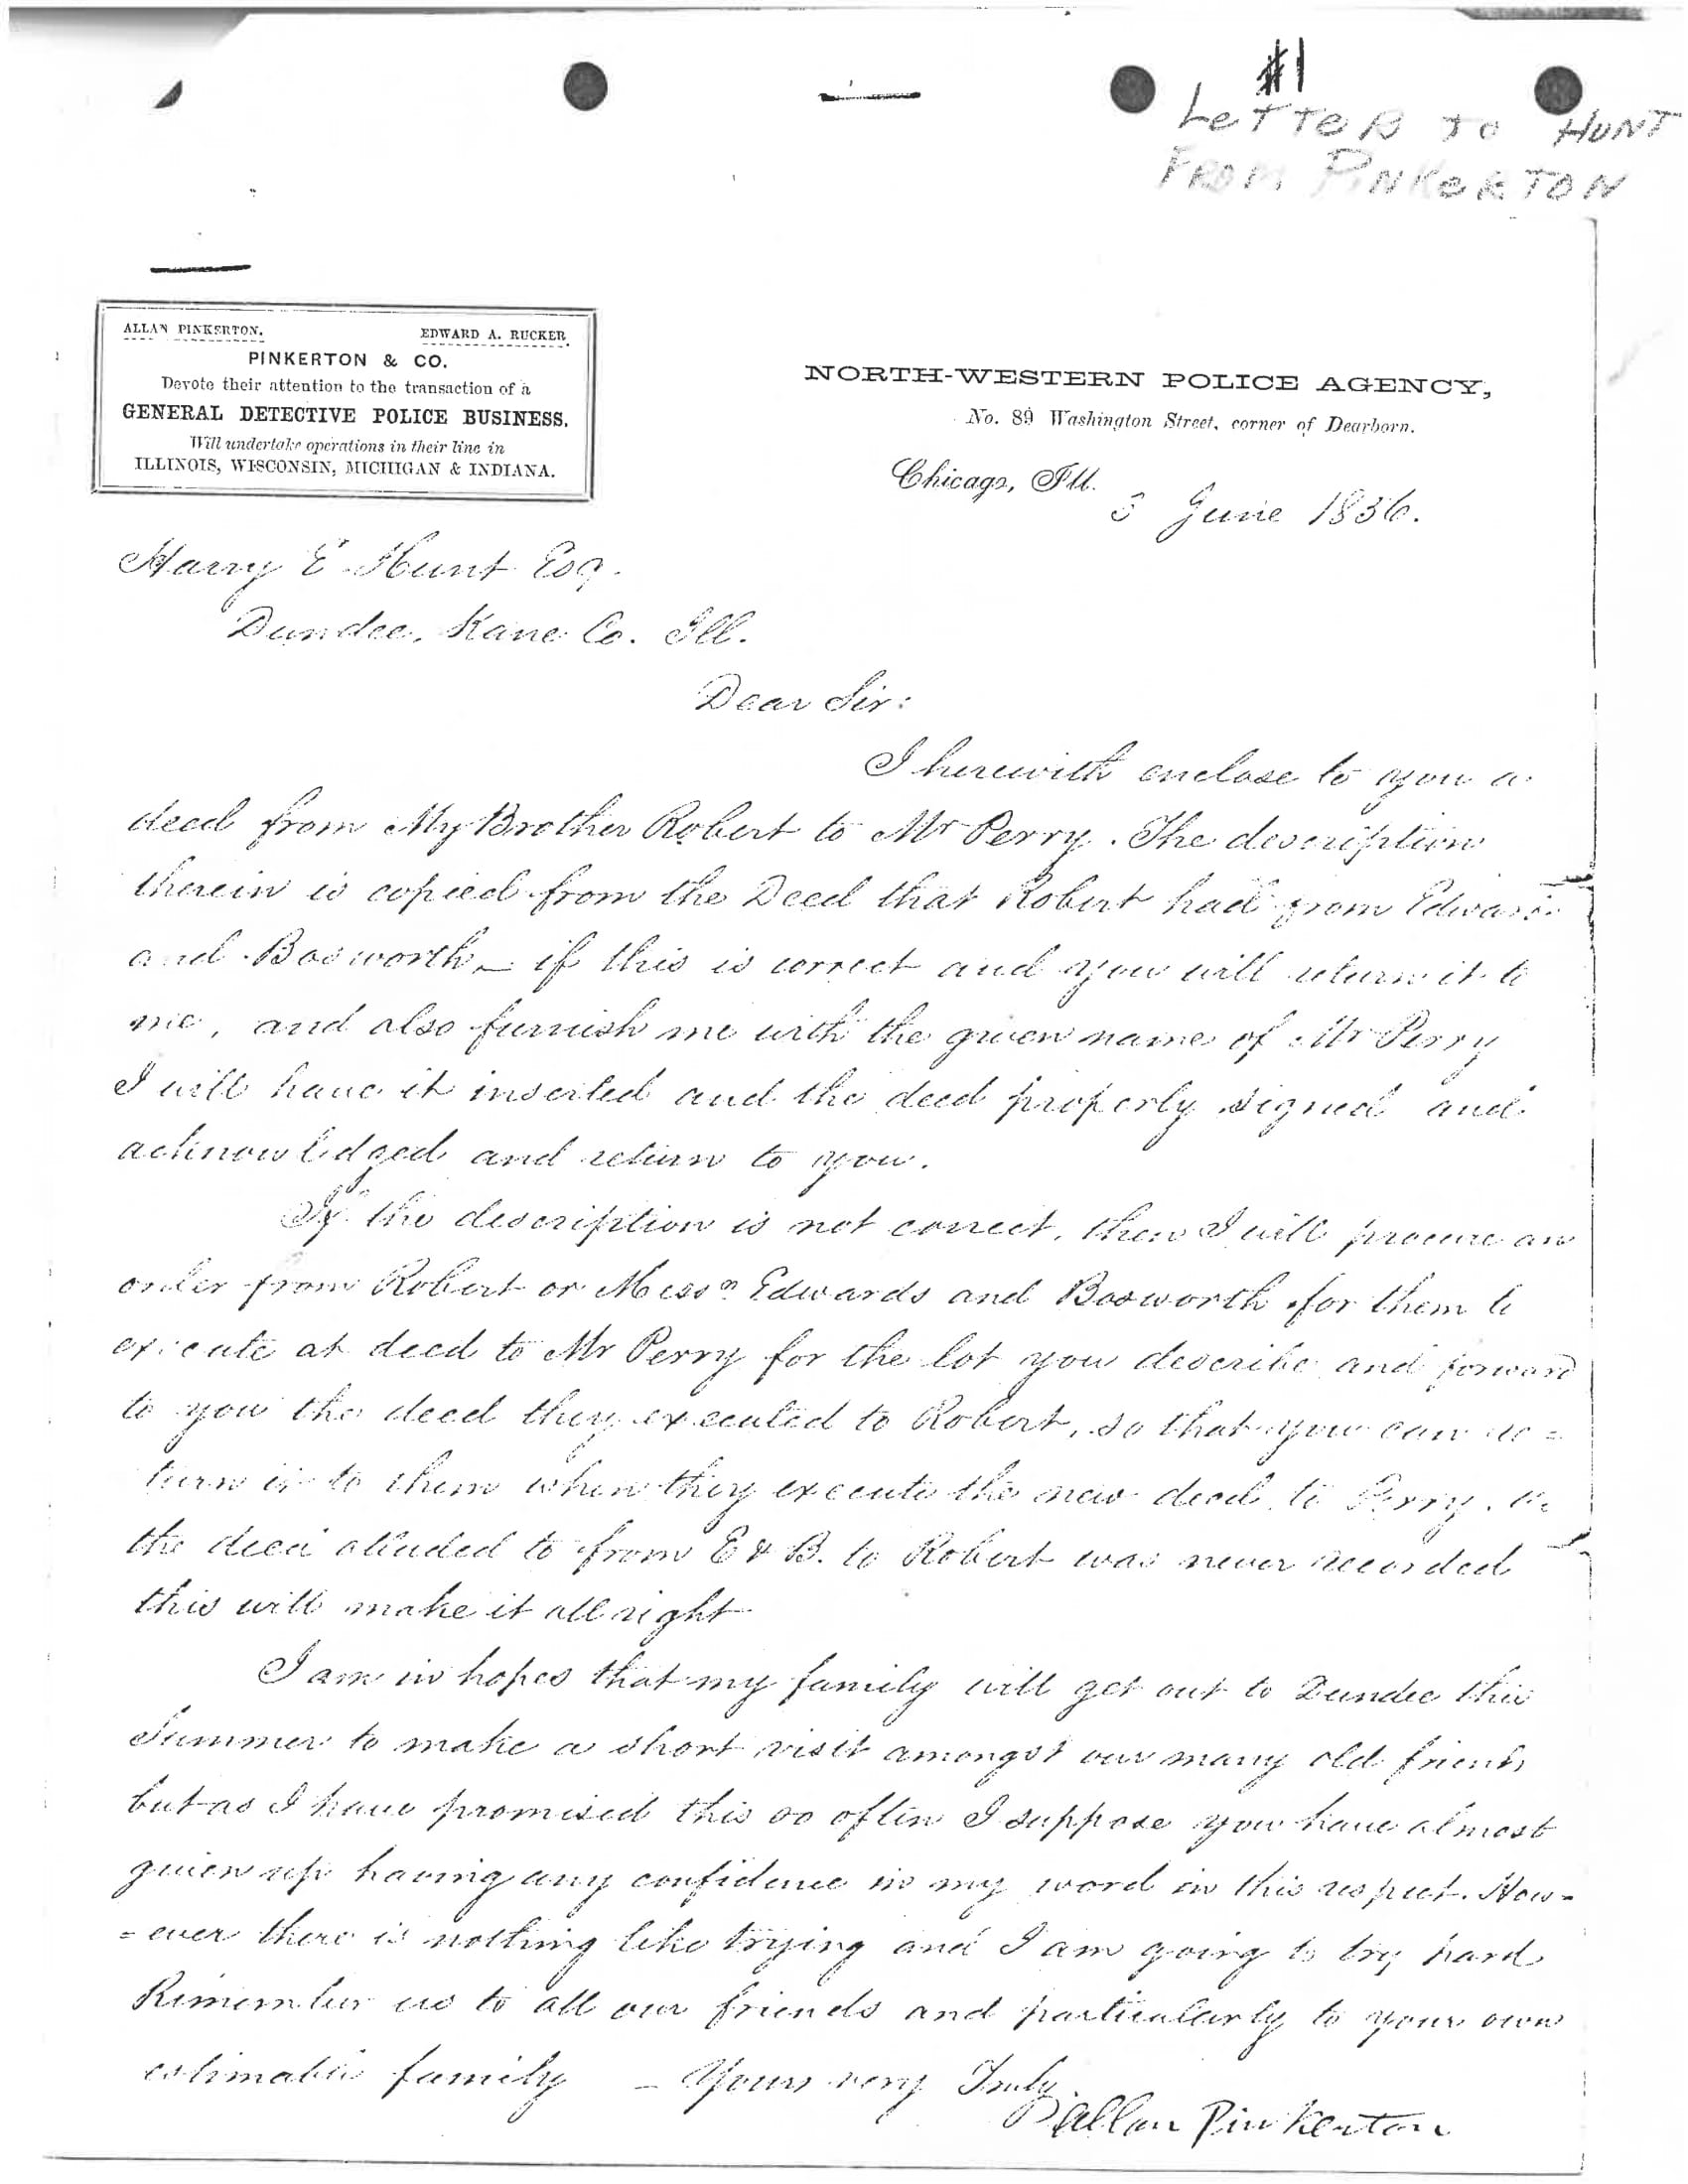 #1
LETTER TO HUNT
FROM PINKERTON
ALLAN PINKERTON. EDWARD A. RUCKER.
PINKERTON & CO.
Devote their attention to the transaction of a
GENERAL DETECTIVE POLICE BUSINESS.
Will undertake operations in their line in
ILLINOIS, WISCONSIN, MICHIGAN & INDIANA.
NORTH-WESTERN POLICE AGENCY,
No. 89 Washington Street, corner of Dearborn.
Chicago, Ill. June 1856.
Harry E Hunt Esq.
Dundee, Kane Co. Ill.
Dear Sir:
I herewith enclose to you a
deed from My Brother Robert to Mr Perry. The description
therein is copied from the Deed that Robert had from Edwards
and Bosworth – if this is correct and you will return it to
me, and also furnish me with the given name of Mr Perry
I will have it inserted and the deed properly signed and
acknowledged and return to you.
If the description is not correct, then I will procure an
order from Robert or Messrs Edwards and Bosworth for them to
execute at deed to Mr Perry for the lot you describe and forward
to you the deed they executed to Robert, so that you can re=
turn it to them when they execute the new deed to Perry.
the deed alluded to from E & B. to Robert was never recorded
this will make it all right
I am in hopes that my family will get out to Dundee this
Summer to make a short visit amongst our many old friends
but as I have promised this so often I suppose you have almost
given up having any confidence in my word in this respect. How=
=ever there is nothing like trying and I am going to try hard
Remember us to all our friends and particularly to your own
estimable family – Yours very Truly
Allan Pinkerton